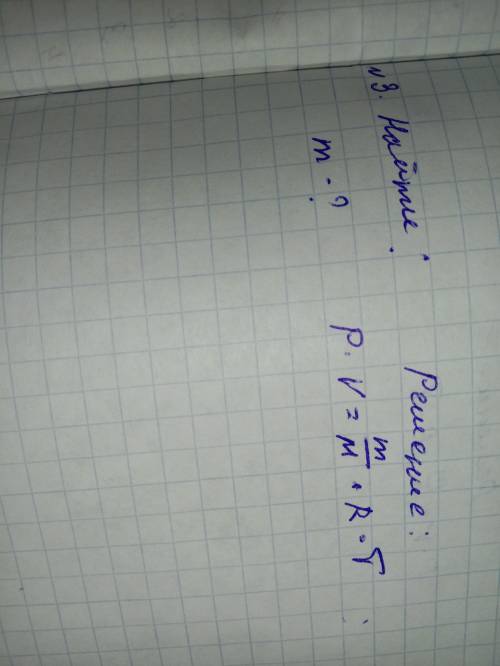 №3. Найти:
m - ?
Решение:
P · V = m/M · R · T